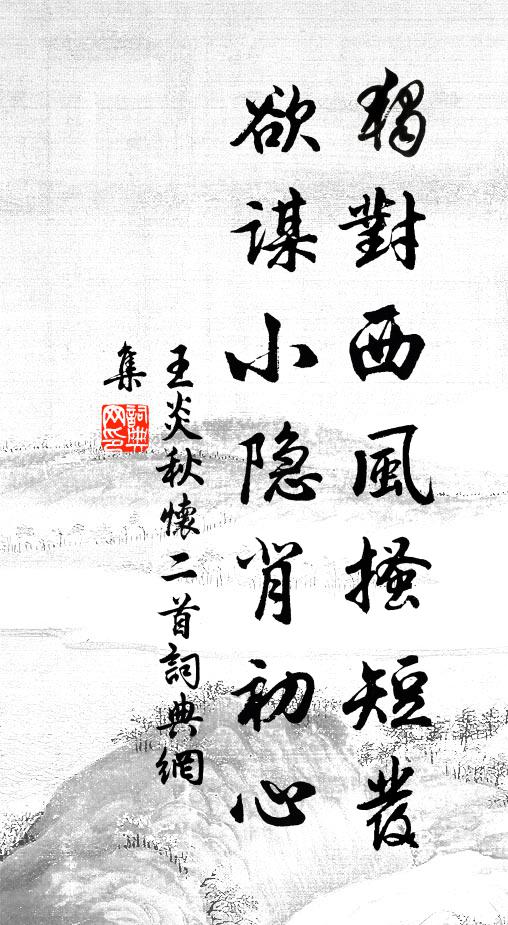 獨對西風搔短髮
欲謀小隐背初心
王炎秋懷二首詞典網
集
詞典
网印